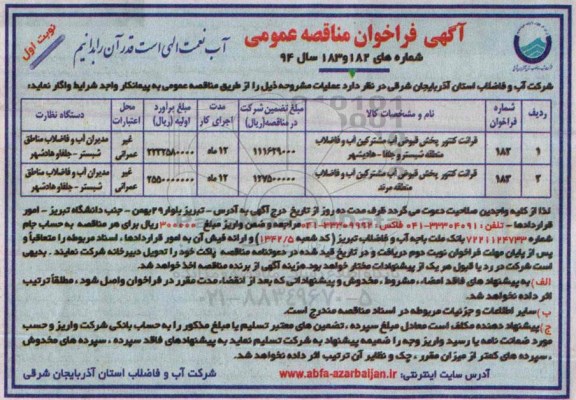 نوبت اول
آگهی فراخوان مناقصه عمومی
شماره های ۱۸۲ و ۱۸۳ سال ۹۴
آب نعمت الهی است قدر آن را بدانیم
شرکت آب و فاضلاب استان آذربایجان شرقی در نظر دارد عملیات مشروحه ذیل را از طریق مناقصه عمومی به پیمانکار واجد شرایط واگذار نماید:
ردیف شماره فراخوان نام و مشخصات کالا مبلغ تضمین شرکت در مناقصه(ریال) مدت اجرای کار مبلغ برآورد اولیه (ریال) محل اعتبارات دستگاه نظارت
۱ ۱۸۲ قرائت کنتور پخش قبوض آب مشترکین آب و فاضلاب منطقه شبستر و جلفا - هادیشهر ۱۱۱۶۲۹۰۰۰ ۱۲ ماه ۲۲۳۲۵۸۰۰۰۰ غیر عمرانی مدیران آب و فاضلاب مناطق شبستر - جلفا و هادیشهر
۲ ۱۸۳ قرائت کنتور پخش قبوض آب مشترکین آب و فاضلاب منطقه مرند ۱۲۷۵۰۰۰۰۰ ۱۲ ماه ۲۵۵۰۰۰۰۰۰۰ غیر عمرانی مدیران آب و فاضلاب مناطق شبستر - جلفا و هادیشهر
لذا از کلیه واجدین صلاحیت دعوت می گردد ظرف مدت ده روز از تاریخ درج آگهی به آدرس - تبریز بلوار ۲۹ بهمن - جنب دانشگاه تبریز - امور
قراردادها - تلفن ۳۳۳۰۴۰۹۱۱-۰۴۱ فاکس: ۳۳۳۰۹۹۶۲-۰۴۱ مراجعه و ضمن واریز مبلغ ۳۰۰۰۰۰ ریال برای هر مناقصه به حساب جام
شماره ۷۲۲۱۱۲۴۷۳۳ بانک ملت باجه آب و فاضلاب تبریز ( کد شعبه ۱۳۴۲/۵) و ارائه فیش آن به امور قراردادها ، اسناد مربوطه را متعاقباً و
پس از پایان مهلت فراخوان نوبت دوم دریافت و در تاریخ قید شده در دعوتنامه مناقصه پاکت خود را تحویل دبیرخانه شرکت نمایند . بدیهی
است شرکت در رد یا قبول هر یک از پیشنهادات مختار خواهد بود هزینه آگهی از برنده مناقصه اخذ خواهد شد.
الف) به پیشنهاد های فاقد امضاء ، مشروط ، مخدوش و پیشنهاداتی که بعد از انقضاء مدت مقرر در فراخوان واصل شود ، مطلقاً ترتیب
اثر داده نخواهد شد.
ب) سایر اطلاعات و جزئیات مربوطه در اسناد مناقصه مندرج است.
ج) پیشنهاد دهنده مکلف است معادل مبلغ سپرده ، تضمین های معتبر تسلیم یا مبلغ مذکور را به حساب بانکی شرکت واریز و حسب
مورد ضمانت نامه یا رسید واریز وجه را ضمیمه پیشنهاد به شرکت تسلیم نماید به پیشنهادهای فاقد سپرده ، سپرده های مخدوش
، سپرده های کمتر از میزان مقرر ، چک و نظایر آن ترتیب اثر داده نخواهد شد.
آدرس سایت اینترنتی: www.abfa-azarbaijan.ir
شرکت آب و فاضلاب استان آذربایجان شرقی